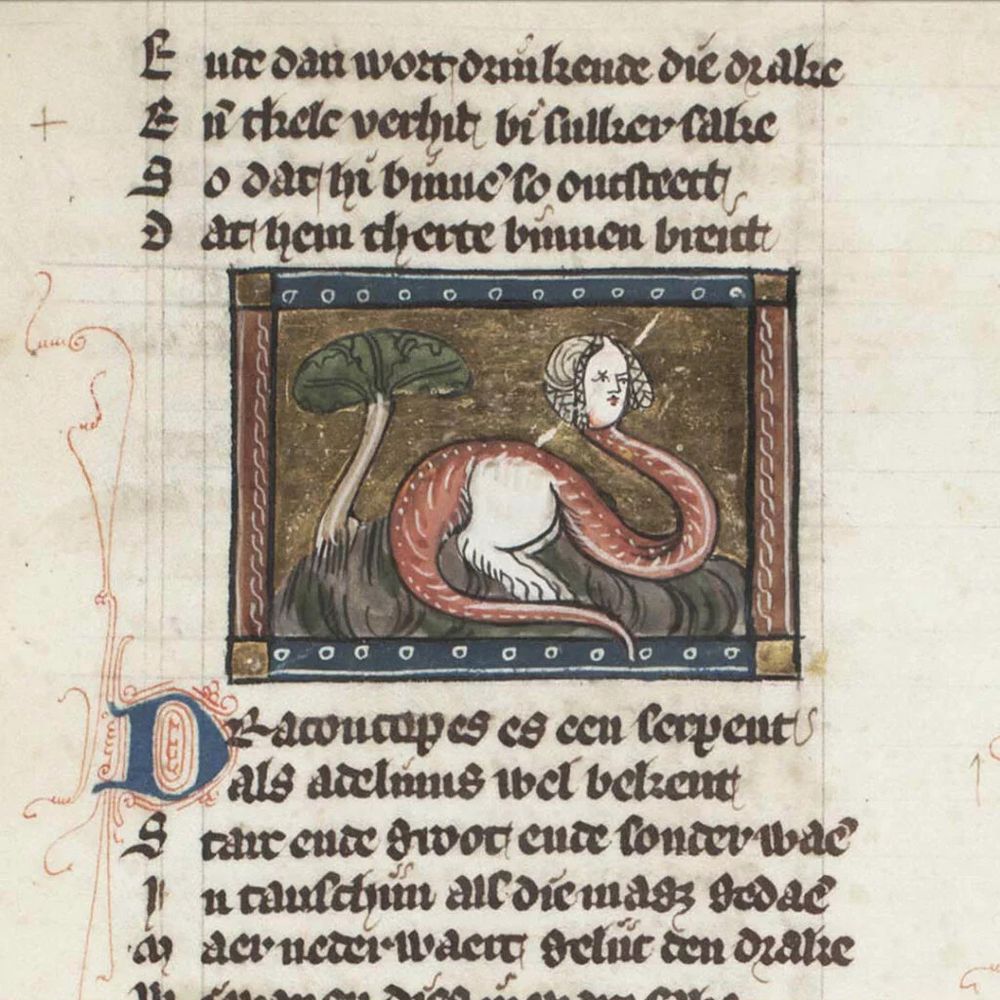 Ende dan wort drinkende die drake
En̄ tkele verhit bi sulker sake
So dat hi binnē so ontsteect
Dat hem therte binnen breict
DRacontopes es een serpent
als adelinus wel bekent
Starc ende groot ende sonder waē
In tanschijn als die magz gedaē
Maer nederwaert gelijc den drake